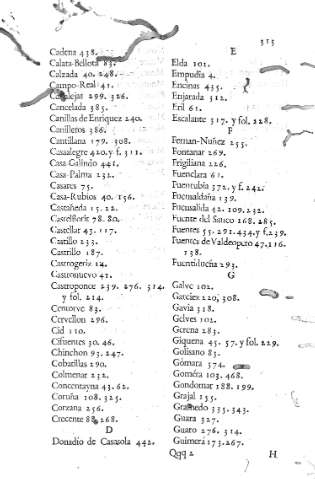 313
Cadena 438.
Calata-Bellota 83.
Calzada 40. 248.
Campo-Real 41.
299. 326.
Cancelada 385.
Canillas de Enriquez 240.
Canilleros 386.
Cantillana 179. 308.
Casaalegre 420. y f. 311.
Casa-Galindo 441.
Casa-Palma 232.
Casares 75.
Casa-Rubios 40. 136.
Castañeda 15. 22.
Castelflorit 78. 80.
Castellar 45. 117.
Castillo 233.
Castrillo 187.
Castrogeriz 14.
Castronuevo 41.
Castroponce 239. 276. 314.
y fol. 214.
Centorve 83.
Cervellon 296.
Cid 110.
Cifuentes 30. 46.
Chinchon 93. 247.
Cobatillas 290.
Colmenar 232.
Concentayna 43. 62.
Coruña 108. 325.
Corzana 256.
Crecente 88. 268.
D
Donadío de Casasola 442.
E
Elda 101.
Empudia 4.
Encinas 435.
Enjarada 312.
Eril 61.
Escalante 317. y fol. 228.
F
Fernan-Nuñez 253.
Fontanar 269.
Frigiliana 226.
Fuenclara 61.
Fuenrubia 372. y f. 242.
Fuensaldaña 139.
Fuensalida 42. 109. 232.
Fuente del Sauco 168. 285.
Fuentes 55. 291. 434. y f. 239.
Fuentes de Valdeopero 47. 116.
138.
Fuentidueña 293.
G
Galve 102.
Garcíez 220. 308.
Gavia 318.
Gelves 102.
Gerena 283.
Giquena 45. 57. y fol. 229.
Golisano 85.
Gómara 374.
Goméra 103. 468.
Gondomar 188. 199.
Grajal 155.
Gramedo 335. 343.
Guara 327.
Guaro 276. 314.
Guimerá 173. 267.
Qqq 2 H